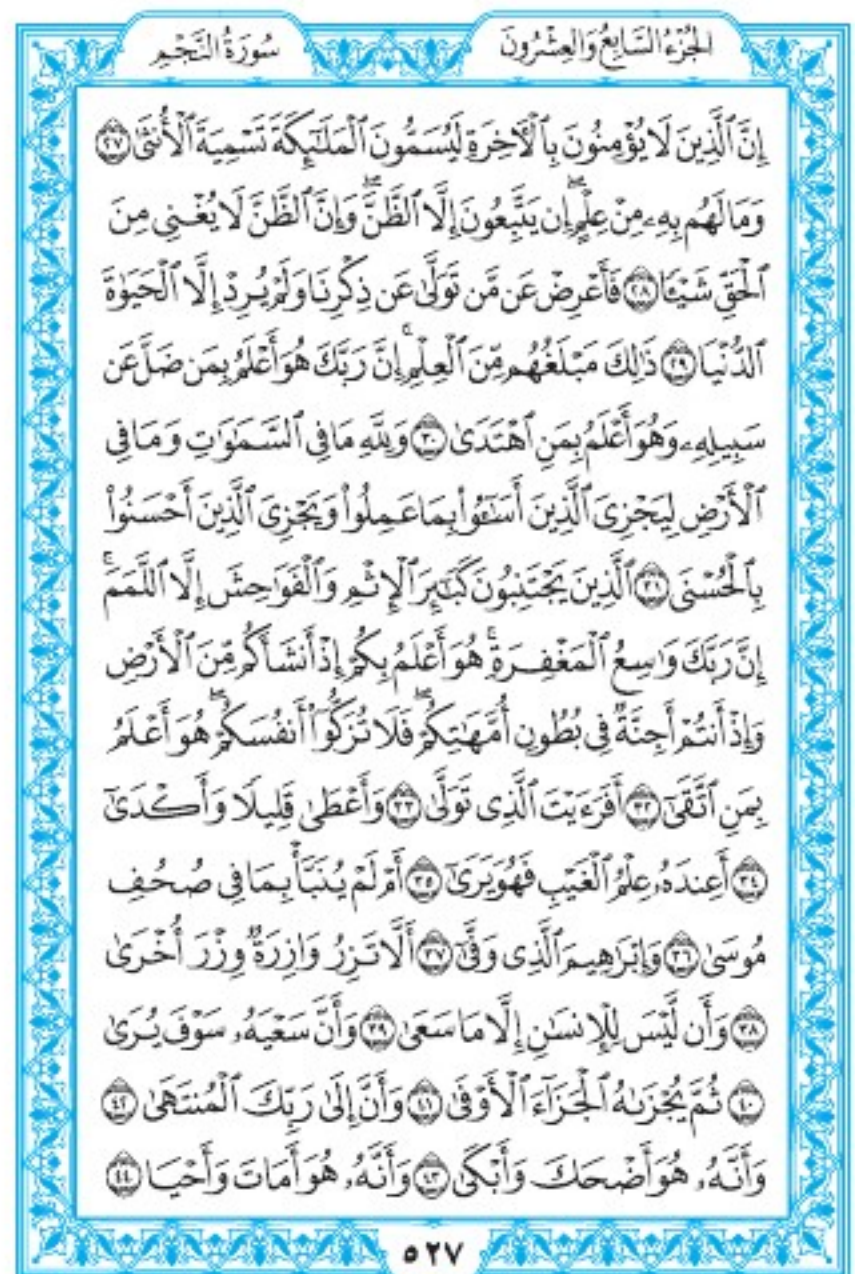 الجُزْءُ السَّابِعُ وَالعِشْرُونَ
سُورَةُ النَّجْمِ
إِنَّ ٱلَّذِينَ لَا يُؤْمِنُونَ بِٱلْأٓخِرَةِ لَيُسَمُّونَ ٱلْمَلَٰٓئِكَةَ تَسْمِيَةَ ٱلْأُنثَىٰ ٢٧
وَمَا لَهُم بِهِۦ مِنْ عِلْمٍۖ إِن يَتَّبِعُونَ إِلَّا ٱلظَّنَّۖ وَإِنَّ ٱلظَّنَّ لَا يُغْنِى مِنَ
ٱلْحَقِّ شَيْـًٔا ٢٨ فَأَعْرِضْ عَن مَّن تَوَلَّىٰ عَن ذِكْرِنَا وَلَمْ يُرِدْ إِلَّا ٱلْحَيَوٰةَ
ٱلدُّنْيَا ٢٩ ذَٰلِكَ مَبْلَغُهُم مِّنَ ٱلْعِلْمِۚ إِنَّ رَبَّكَ هُوَ أَعْلَمُ بِمَن ضَلَّ عَن
سَبِيلِهِۦ وَهُوَ أَعْلَمُ بِمَنِ ٱهْتَدَىٰ ٣٠ وَلِلَّهِ مَا فِى ٱلسَّمَٰوَٰتِ وَمَا فِى
ٱلْأَرْضِ لِيَجْزِىَ ٱلَّذِينَ أَسَٰٓـُٔوا۟ بِمَا عَمِلُوا۟ وَيَجْزِىَ ٱلَّذِينَ أَحْسَنُوا۟
بِٱلْحُسْنَى ٣١ ٱلَّذِينَ يَجْتَنِبُونَ كَبَٰٓئِرَ ٱلْإِثْمِ وَٱلْفَوَٰحِشَ إِلَّا ٱللَّمَمَۚ
إِنَّ رَبَّكَ وَٰسِعُ ٱلْمَغْفِرَةِۚ هُوَ أَعْلَمُ بِكُمْ إِذْ أَنشَأَكُم مِّنَ ٱلْأَرْضِ
وَإِذْ أَنتُمْ أَجِنَّةٌ فِى بُطُونِ أُمَّهَٰتِكُمْۖ فَلَا تُزَكُّوٓا۟ أَنفُسَكُمْۖ هُوَ أَعْلَمُ
بِمَنِ ٱتَّقَىٰٓ ٣٢ أَفَرَءَيْتَ ٱلَّذِى تَوَلَّىٰ ٣٣ وَأَعْطَىٰ قَلِيلًا وَأَكْدَىٰٓ
٣٤ أَعِندَهُۥ عِلْمُ ٱلْغَيْبِ فَهُوَ يَرَىٰٓ ٣٥ أَمْ لَمْ يُنَبَّأْ بِمَا فِى صُحُفِ
مُوسَىٰ ٣٦ وَإِبْرَٰهِيمَ ٱلَّذِى وَفَّىٰٓ ٣٧ أَلَّا تَزِرُ وَازِرَةٌ وِزْرَ أُخْرَىٰ
٣٨ وَأَن لَّيْسَ لِلْإِنسَٰنِ إِلَّا مَا سَعَىٰ ٣٩ وَأَنَّ سَعْيَهُۥ سَوْفَ يُرَىٰ
٤٠ ثُمَّ يُجْزَىٰهُ ٱلْجَزَآءَ ٱلْأَوْفَىٰ ٤١ وَأَنَّ إِلَىٰ رَبِّكَ ٱلْمُنتَهَىٰ ٤٢
وَأَنَّهُۥ هُوَ أَضْحَكَ وَأَبْكَىٰ ٤٣ وَأَنَّهُۥ هُوَ أَمَاتَ وَأَحْيَا ٤٤
٥٢٧